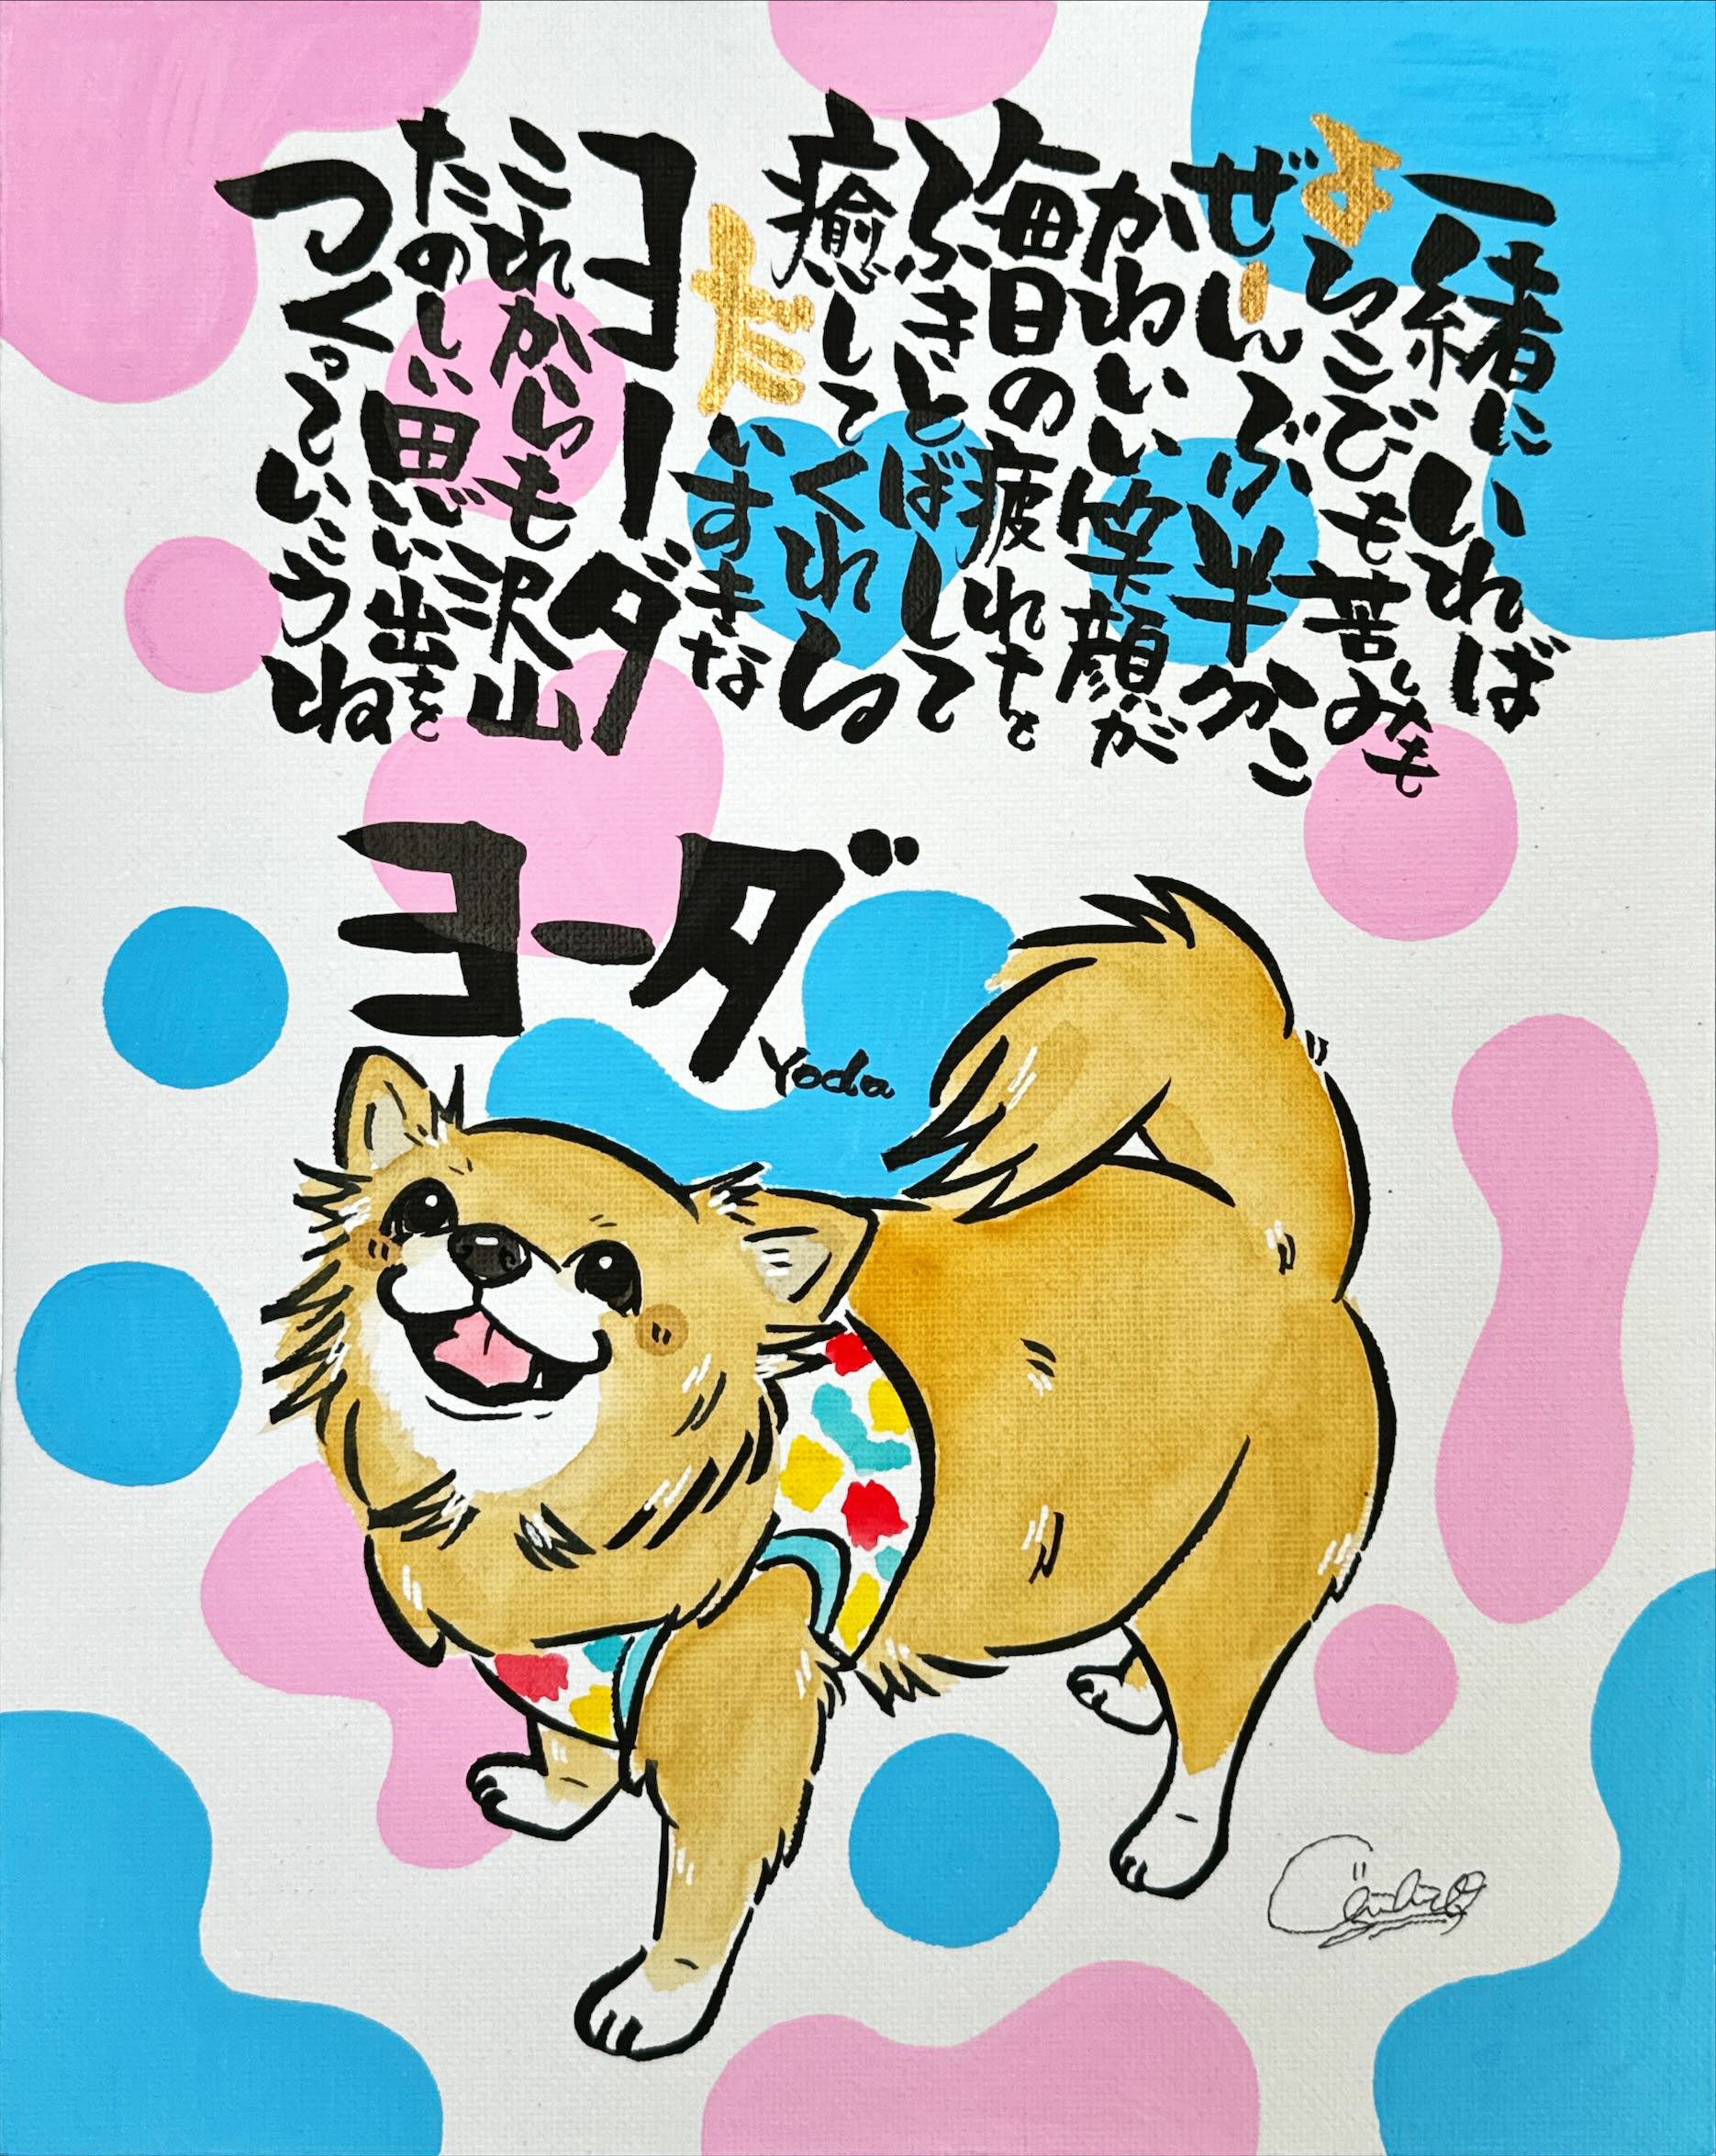 一緒にいれば
よろこびも苦しみも
ぜーんぶ半分こ
かわいい笑顔が
毎日の疲れを
ふきとばして
癒してくれる
だいすきな
ヨーダ
これからも沢山
たのしい思い出を
つくっていこうね
ヨーダ
Yoda